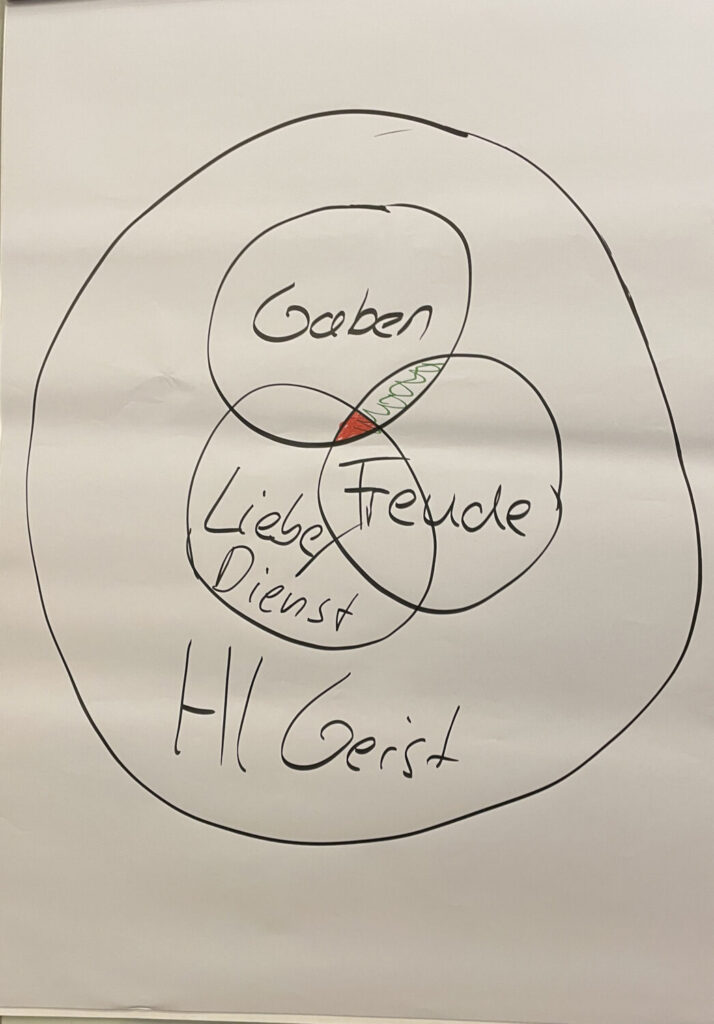 Gaben
Freude
Liebe
Dienst
Hl Geist